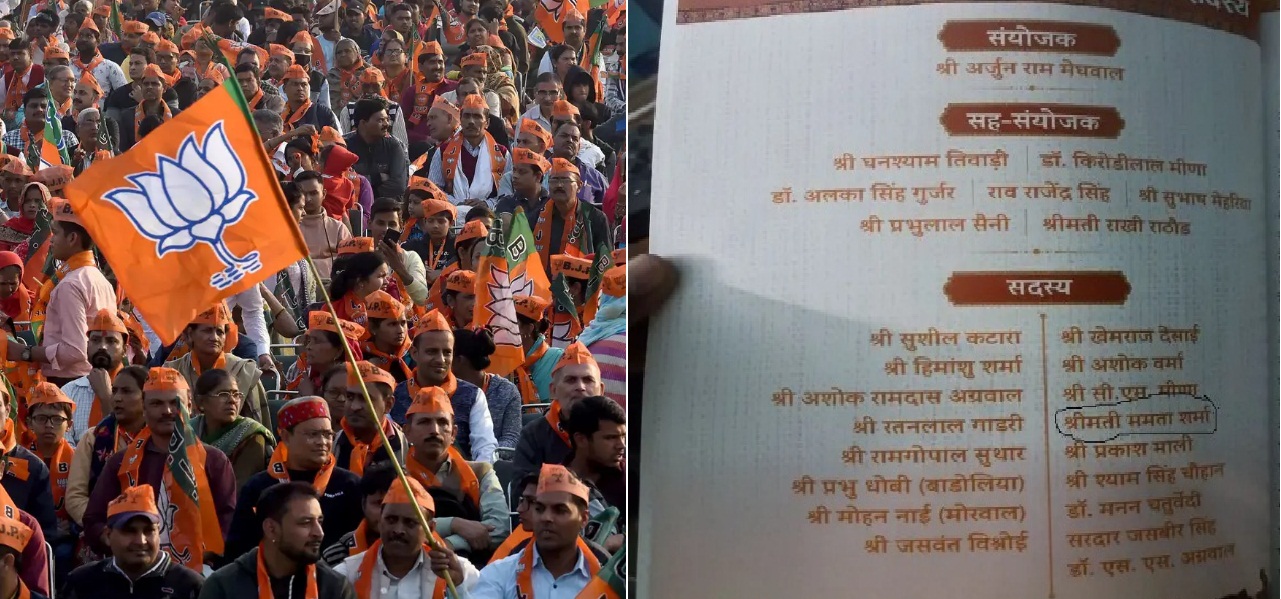 B.J.P.
सदस्य
संयोजक
श्री अर्जुन राम मेघवाल
सह-संयोजक
श्री घनश्याम तिवाड़ी | डॉ. किरोडीलाल मीणा
डॉ. अलका सिंह गुर्जर | राव राजेंद्र सिंह | श्री सुभाष मेहरिया
श्री प्रभुलाल सैनी | श्रीमती राखी राठौड़
सदस्य
श्री सुशील कटारा
श्री हिमांशु शर्मा
श्री अशोक रामदास अग्रवाल
श्री रतनलाल गाडरी
श्री रामगोपाल सुथार
श्री प्रभु धोबी (बाडोलिया)
श्री मोहन नाई (मोरवाल)
श्री जसवंत विश्नोई
श्री खेमराज देसाई
श्री अशोक वर्मा
श्री सी.एम. मीणा
श्रीमती ममता शर्मा
श्री प्रकाश माली
श्री श्याम सिंह चौहान
डॉ. मनन चतुर्वेदी
सरदार जसबीर सिंह
डॉ. एस. एस. अग्रवाल